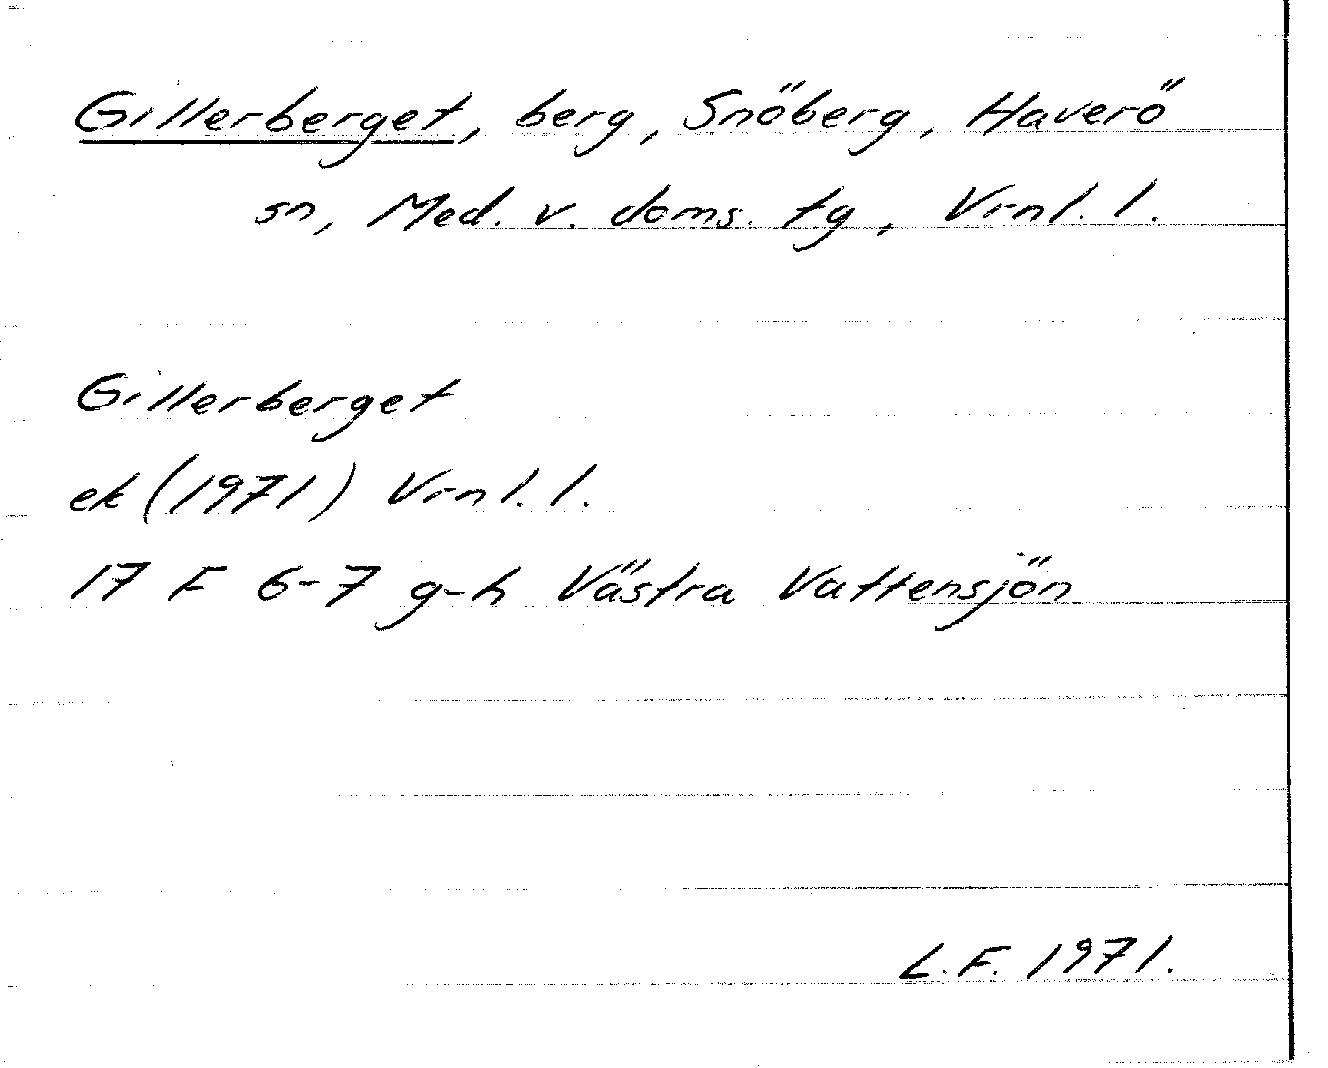 Gillerberget, berg, Snöberg, Haverö
sn, Med. v. doms. tg, Vrnl. l.
Gillerberget
ek (1971) Vrnl. l.
17 F 6-7 g-h Västra Vattensjön
L.F. 1971.